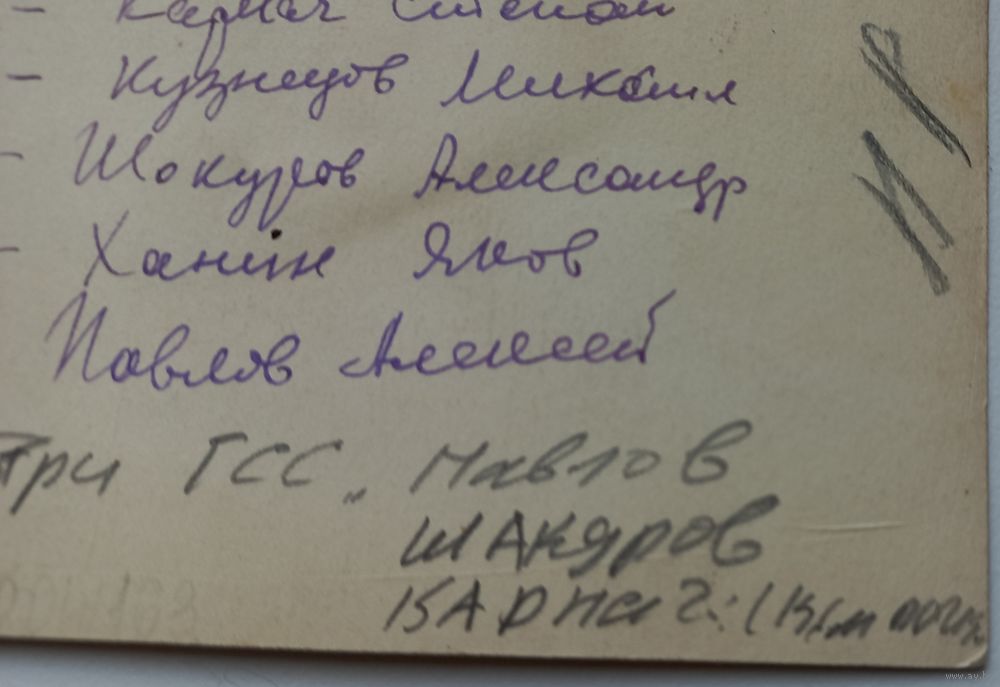 – Карпач Степан
– Кузнецов Михаил
– Шокуров Александр
– Ханин Яков
Павлов Алексей
Три ГСС „ Павлов
ШАКУРОВ
КАРПАЧ
www.ay.b